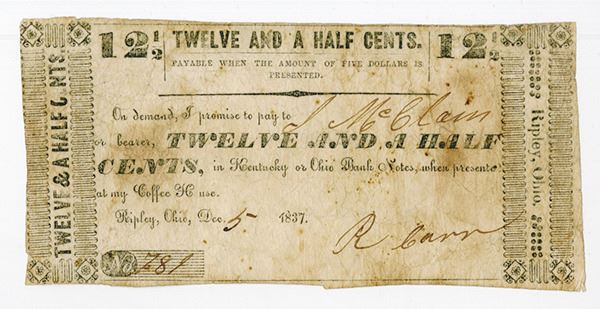 12½ TWELVE AND A HALF CENTS. 12½
PAYABLE WHEN THE AMOUNT OF FIVE DOLLARS IS
PRESENTED.
On demand, I promise to pay to J McClain
or bearer, TWELVE AND A HALF
CENTS, in Kentucky or Ohio Bank Notes, when presente
at my Coffee H use.
Ripley, Ohio, Dec. 5 1837.
R Carr
No 781
TWELVE & A HALF C NTS.
Ripley, Ohio.